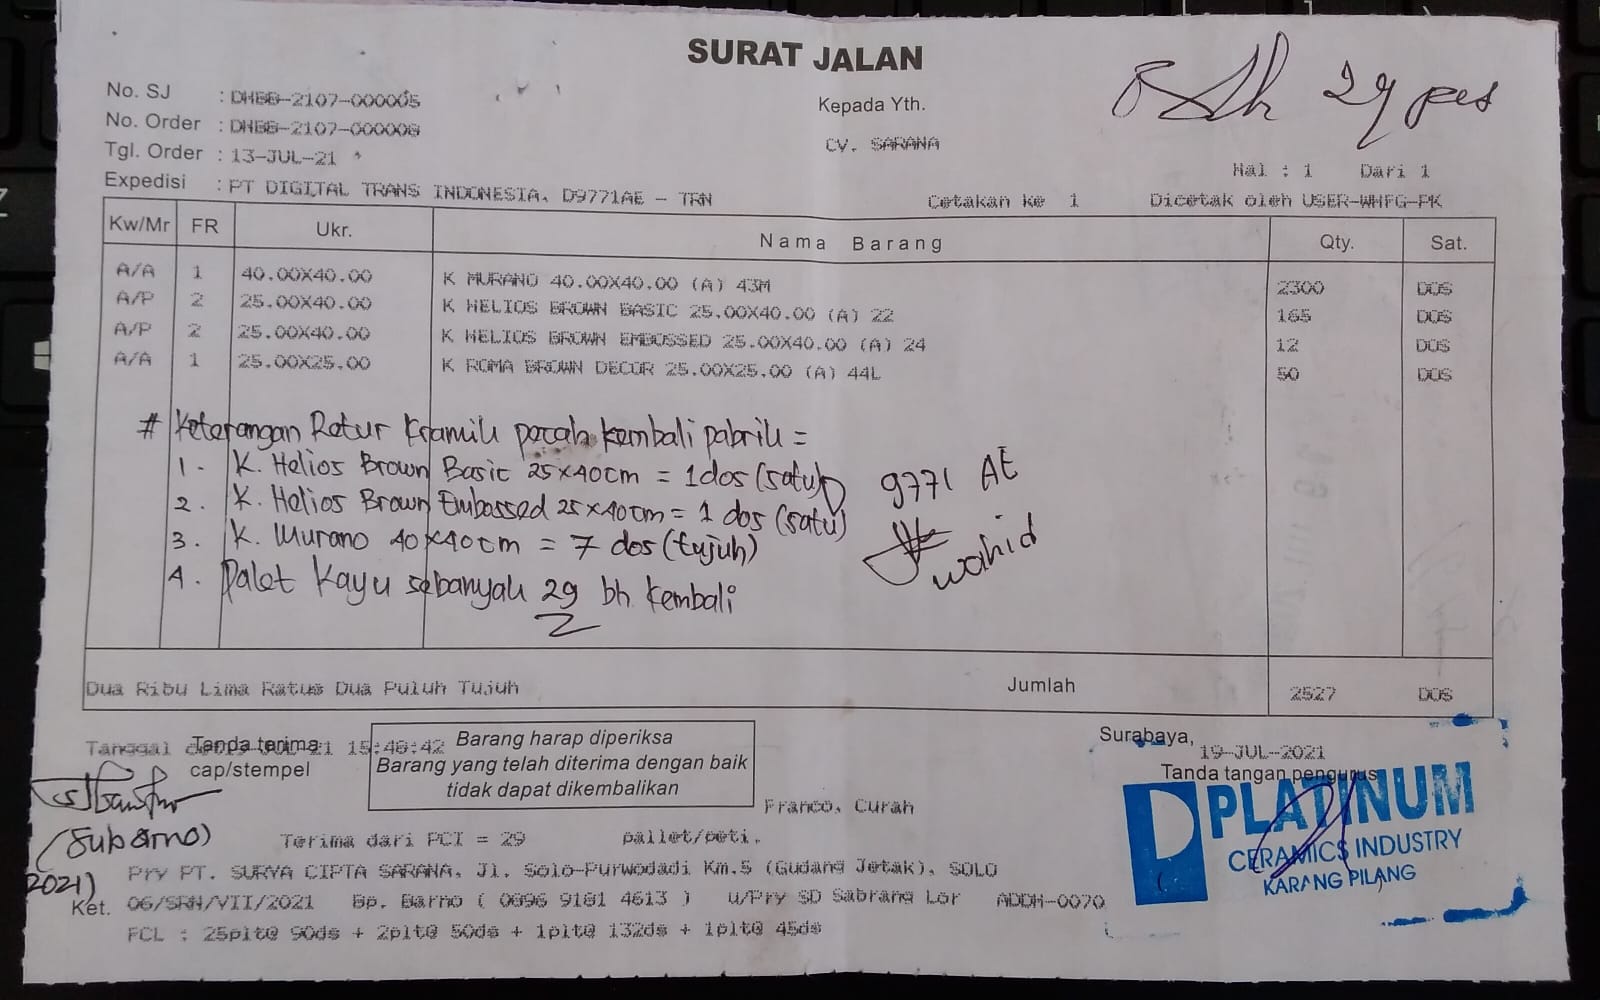 SURAT JALAN
No. SJ : DHBB-2107-000005
No. Order : DHBB-2107-000008
Tgl. Order : 13-JUL-21
Expedisi : PT DIGITAL TRANS INDONESIA, D9771AE - TRN
Kepada Yth.
CV. SARANA
29 pcs
Hal : 1 Dari 1
Cetakan ke 1 Dicetak oleh USER-WHFG-PK
Kw/Mr FR Ukr. Nama Barang Qty. Sat.
A/A 1 40.00X40.00 K MURANO 40.00X40.00 (A) 43M 2300 DOS
A/P 2 25.00X40.00 K HELIOS BROWN BASIC 25.00X40.00 (A) 22 165 DOS
A/P 2 25.00X40.00 K HELIOS BROWN EMBOSSED 25.00X40.00 (A) 24 12 DOS
A/A 1 25.00X25.00 K ROMA BROWN DECOR 25.00X25.00 (A) 44L 50 DOS
# Keterangan Retur Kramik pecah kembali pabrik =
1. K. Helios Brown Basic 25x40cm = 1 dos (satu)
2. K. Helios Brown Embossed 25x40cm = 1 dos (satu)
3. K. Murano 40x40cm = 7 dos (tujuh)
4. Palet Kayu sebanyak 29 bh kembali
9771 AE
wahid
Dua Ribu Lima Ratus Dua Puluh Tujuh Jumlah 2527 DOS
Tanggal 21 15:48:42
Tanda terima
cap/stempel
Barang harap diperiksa
Barang yang telah diterima dengan baik
tidak dapat dikembalikan
Surabaya, 19-JUL-2021
Tanda tangan pengurus
Franco, Curah
PLATINUM
CERAMICS INDUSTRY
KARANG PILANG
(Subarno)
2021)
Terima dari PCI = 29 pallet/peti.
Pry PT. SURYA CIPTA SARANA, Jl. Solo-Purwodadi Km.5 (Gudang Jetak), SOLO
Ket. 06/SRN/VII/2021 Bp. Barno ( 0896 9181 4613 ) u/Pry SD Sabrang Lor ADDH-0070
FCL : 25plt@ 90ds + 2plt@ 50ds + 1plt@ 132ds + 1plt@ 45ds